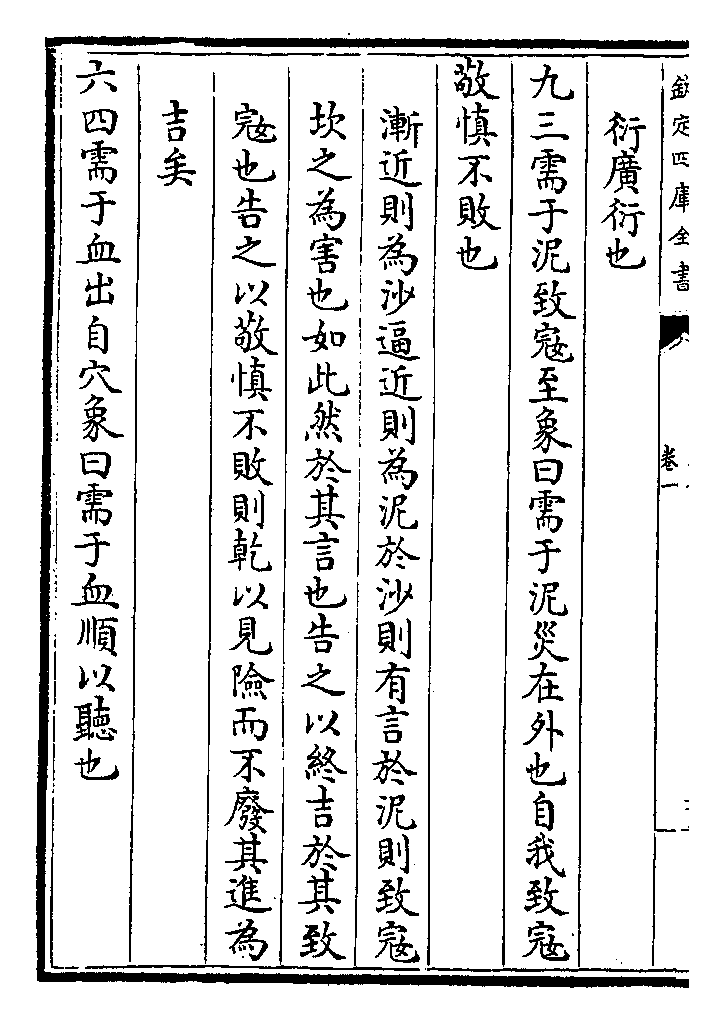 欽定四庫全書
卷一
衍廣衍也
九三需于泥致寇至象曰需于泥災在外也自我致寇
敬慎不敗也
漸近則為沙逼近則為泥於沙則有言於泥則致寇
坎之為害也如此然於其言也告之以終吉於其致
寇也告之以敬慎不敗則乾以見險而不廢其進為
吉矣
六四需于血出自穴象曰需于血順以聽也